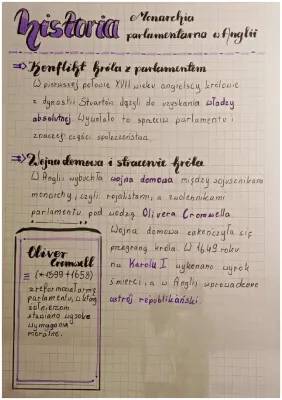 historia
Monarchia
parlamentarna w Anglii
Konflikt króla z parlamentem
W pierwszej połowie XVII wieku angielscy królowie
z dynastii Stuartów dążyli do uzyskania władzy
absolutnej. Wywołało to sprzeciw parlamentu i
znacznej części społeczeństwa.
Wojna domowa i stracenie króla
W Anglii wybuchła wojna domowa między sojusznikami
monarchy, czyli rojalistami, a zwolennikami
parlamentu pod wodzą Olivera Cromwella.
Wojna domowa zakończyła się
przegraną króla. W 1649 roku
na Karolu I wykonano wyrok
śmierci, a w Anglii wprowadzono
ustrój republikański.
Oliver
Cromwell
(*1599 †1658)
zreformował armię
parlamentu, w której
żołnierzom
stawiano wysokie
wymagania
moralne.